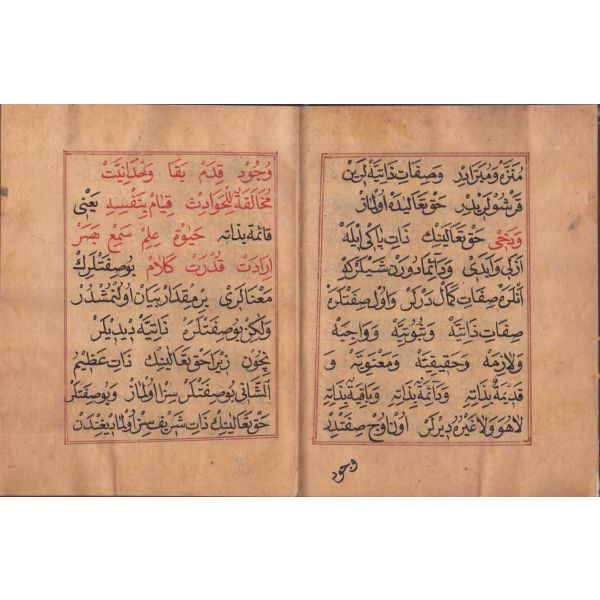 مُنَزَّه وَمُبَرَّادِرْ وَصِفَاتِ ذَاتِيَّه لَرِنْ
حَقْ تَعَالَيْدَه اُولْمَازْ
وَدَخِى حَقْ تَعَالَيْنِكْ ذَاتِ پَاكِى اِيلَه
اَزَلِى وَاَبَدِى وَدَائِمَا دُورَنْ شَيْلَرْكِه
اَنْلَرَه صِفَاتِ كَمَالْ دِرْلَرْ وَاُولْ صِفَتْلَرَه
صِفَاتِ ذَاتِيَّه وَثُبُوتِيَّه وَوَاجِبَه
وَلَازِمَه وَحَقِيقِيَّه وَمَعْنَوِيَّه وَ
قَدِيمَةٌ بِذَاتِه وَدَائِمَةٌ بِذَاتِه وَبَاقِيَةٌ بِذَاتِه
لَاهُوَ وَلَاغَيْرُه دِيرْلَرْ اُونْ اُوچْ صِفَتْدِرْ
وجود
وُجُودْ قِدَمْ بَقَا وَحْدَانِيَّتْ
مُخَالَفَةٌ لِلْحَوَادِثْ قِيَامْ بِنَفْسِهِ يَعْنِى
قَائِمَة بِذَاتِهِ حَيٰوةْ عِلِمْ سَمِعْ بَصَرْ
اِرَادَتْ قُدْرَتْ كَلَامْ بُوصِفَتْلَرِكْ
مَعْنَالَرِى بِرْ مِقْدَارْ بَيَانْ اُولُنْمُشْدُرْ
وَلٰكِنْ بُوصِفَتْلَرَه ذَاتِيَّه دِيدِيلَرْ
نِچُونْ زِيرَا حَقْ تَعَالَينِكْ ذَاتِ عَظِيمُ
الشَّانِى بُوصِفَتْلَرْسِزْ اُولْمَازْ وَبُوصِفَتْلَرْ
حَقْ تَعَالَينِكْ ذَاتِ شَرِيفْسِزْ اُولْمَادِيغِنْدَنْ